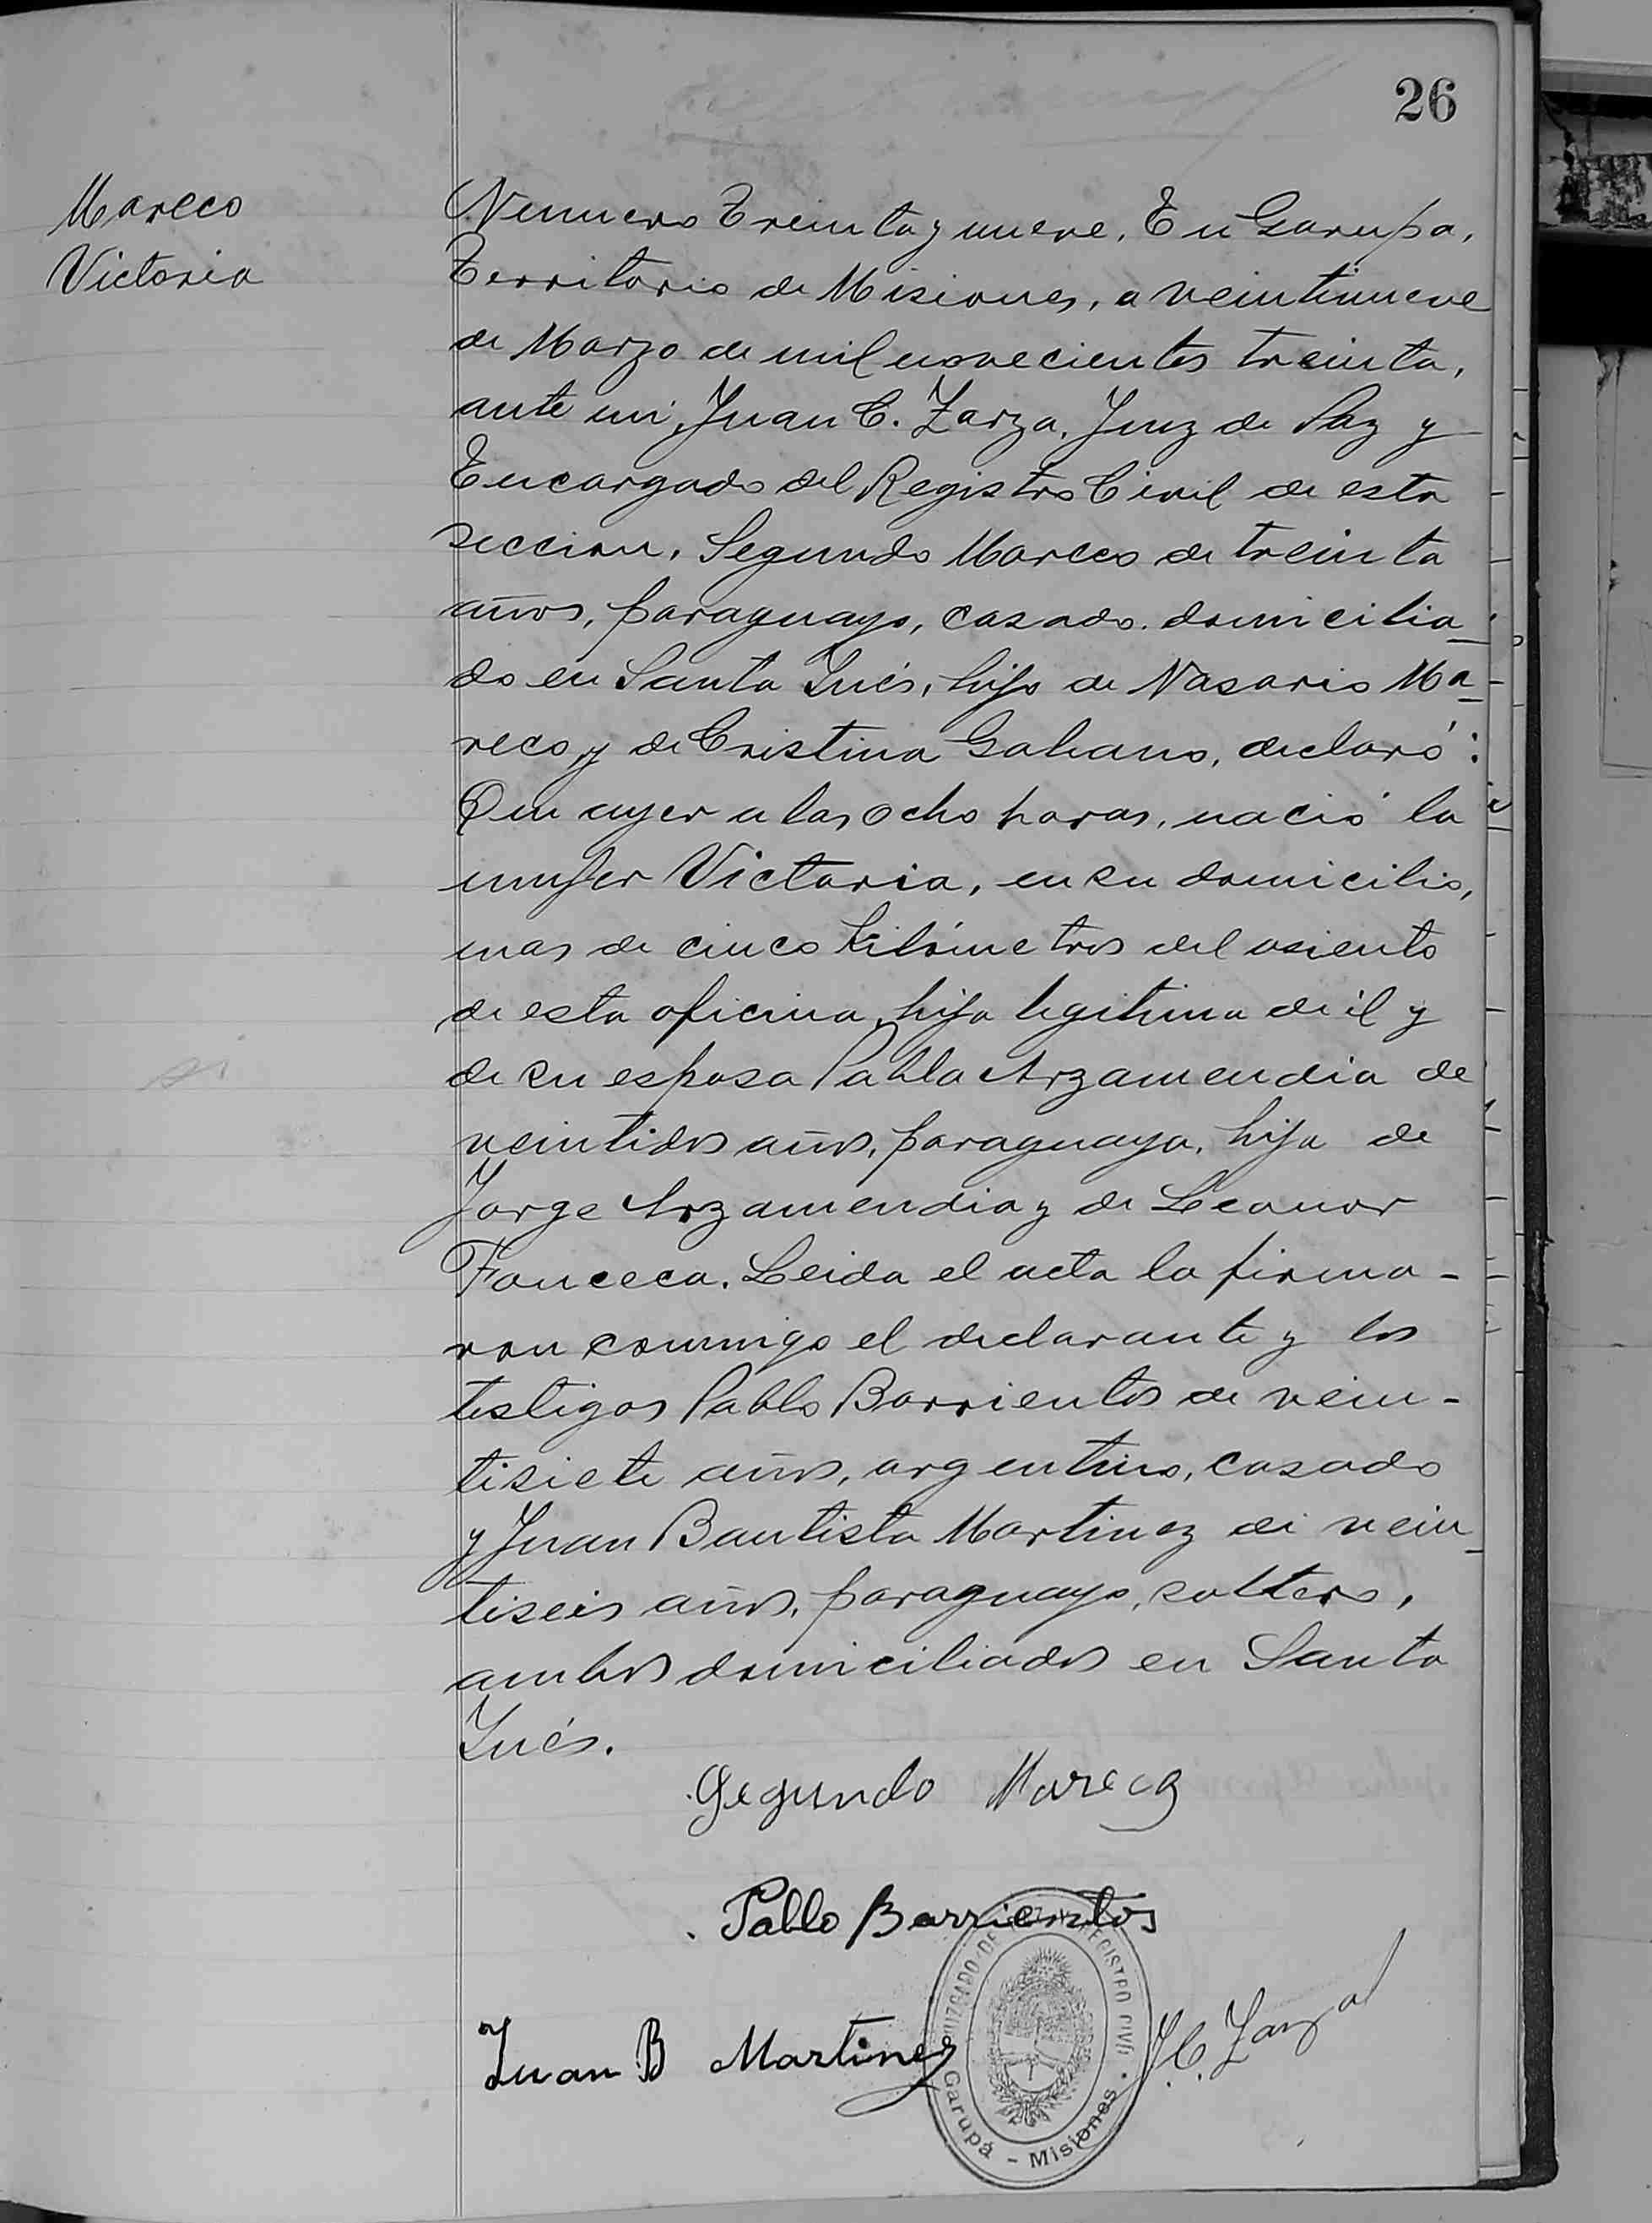 26
Mareco
Victoria
Numero Treinta y nueve. En Garupa,
Territorio de Misiones, a veintinueve
de Marzo de mil novecientos treinta,
ante mi, Juan C. Zarza, Juez de Paz y
Encargado del Registro Civil de esta
seccion, Segundo Mareco de treinta
años, paraguayo, casado, domicilia-
do en Santa Inés, hijo de Nasario Ma-
reco y de Cristina Galeano, declaró:
Que ayer a las ocho horas, nació la
mujer Victoria, en su domicilio,
mas de cinco kilómetros del asiento
de esta oficina, hija legitima de él y
de su esposa Pabla Arzamendia de
veintidos años, paraguaya, hija de
Jorge Arzamendia y de Leonor
Fonceca. Leida el acta la firma-
ron conmigo el declarante y los
testigos Pablo Barrientos de vein-
tisiete años, argentino, casado
y Juan Bautista Martinez de vein-
tiseis años, paraguayo, soltero,
ambos domiciliados en Santa
Inés.
Segundo Mareco
Pablo Barrientos
Juan B Martinez
J. C. Zarza
JUZGADO DE REGISTRO CIVIL
Garupá - Misiones